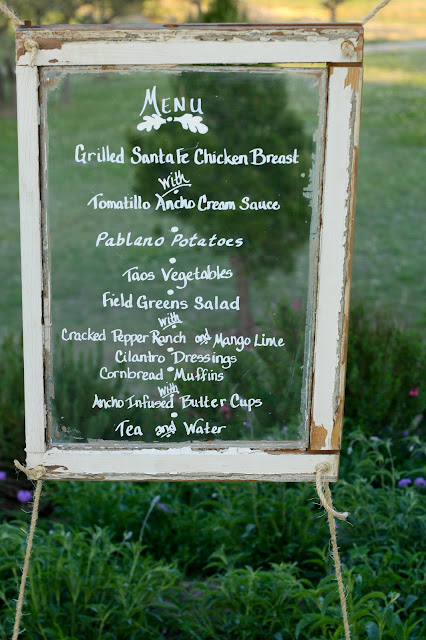 Menu
Grilled Santa Fe Chicken Breast
with
Tomatillo Ancho Cream Sauce
Pablano Potatoes
Taos Vegetables
Field Greens Salad
with
Cracked Pepper Ranch and Mango Lime
Cilantro Dressings
Cornbread Muffins
with
Ancho Infused Butter Cups
Tea and Water